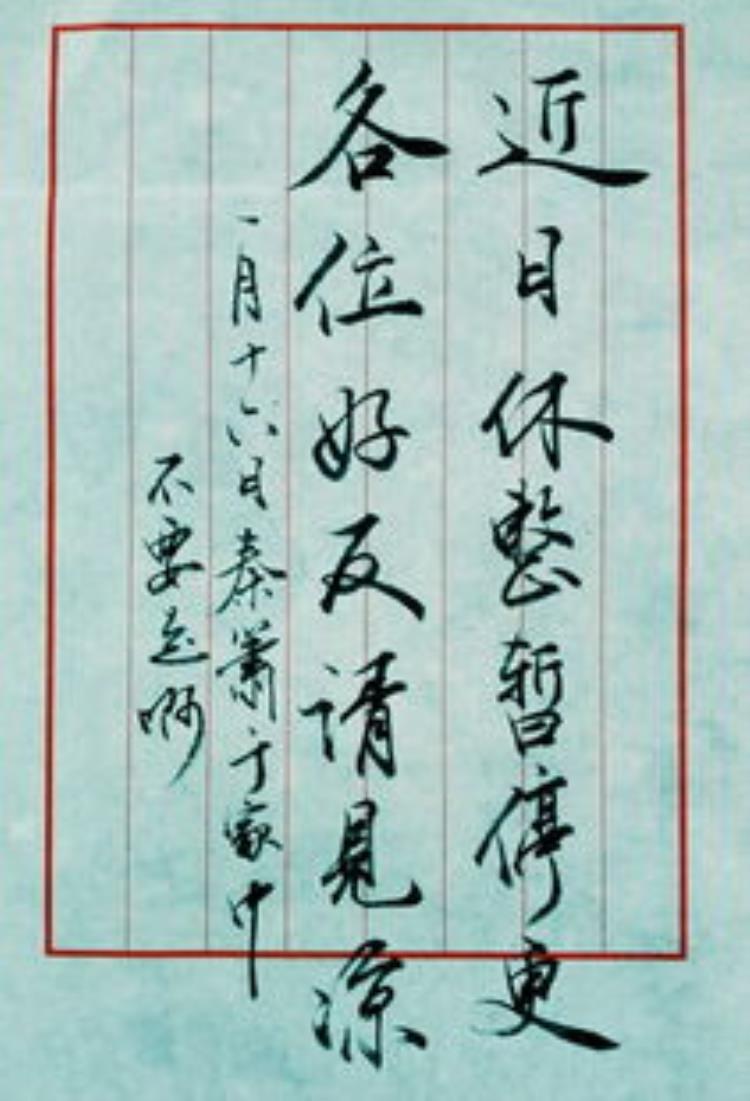 近日休整暂停更
各位好友请见凉
一月十六日秦箫于家中
不要忘啊